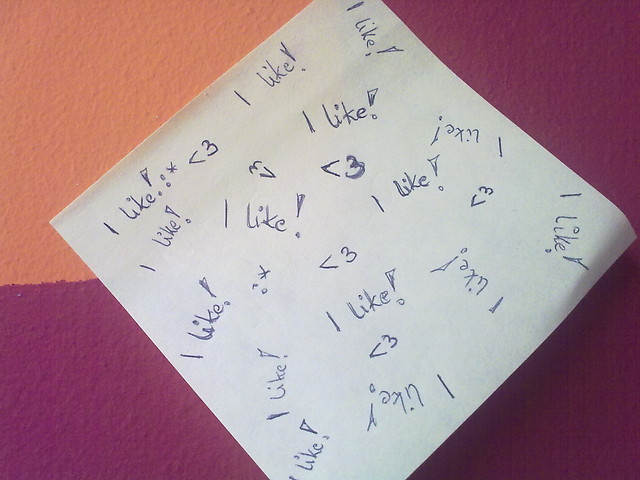 I like!
I like!
I like!
I like!
<3
<3
<3
I like! :*
I like!
<3
I like!
I like!
I like!
<3
:*
I like!
I like!
I like!
<3
I like!
I like!
I like!